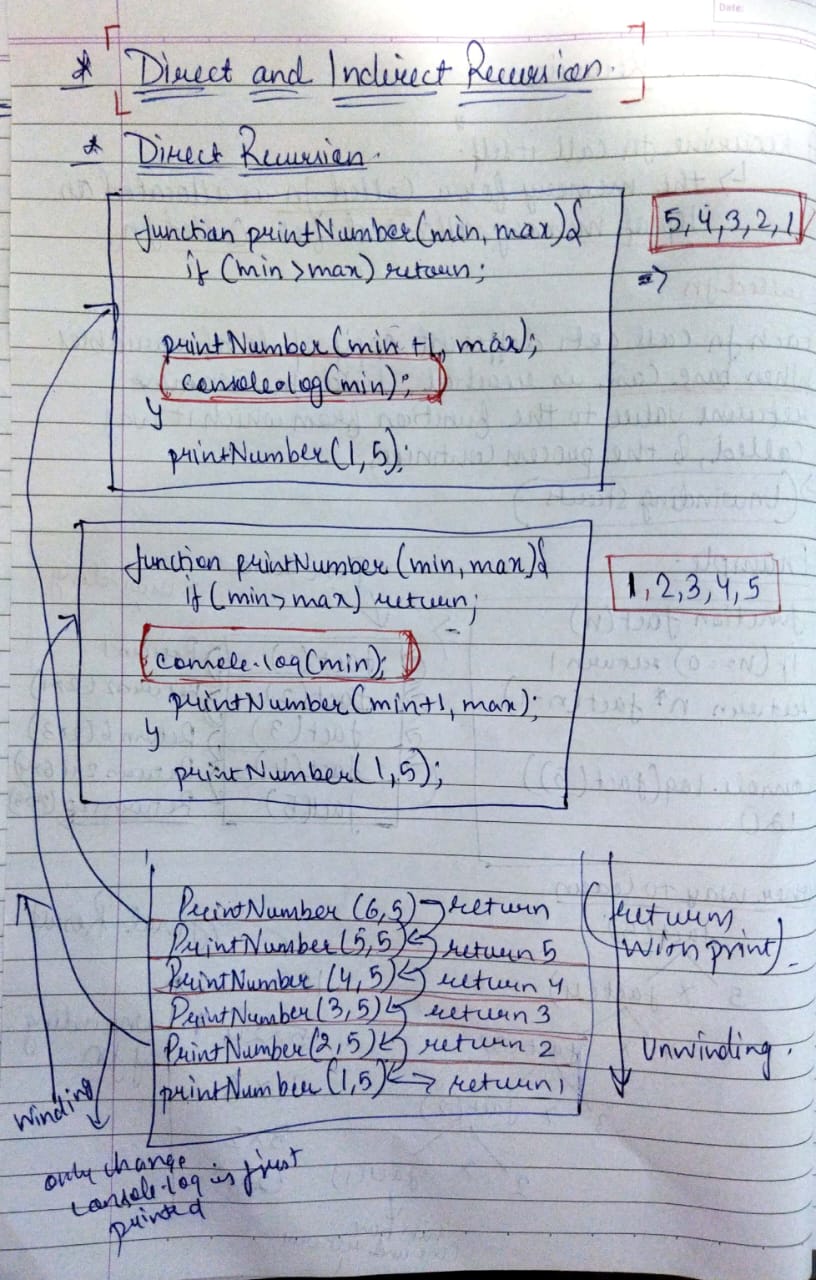 Date:
* Direct and Indirect Recursion.
* Direct Recursion.
function printNumber(min, max){
if (min > max) return;
printNumber(min+1, max);
console.log(min);
}
printNumber(1,5);
5,4,3,2,1
=>
function printNumber(min, max){
if (min > max) return;
console.log(min);
printNumber(min+1, max);
}
printNumber(1,5);
1,2,3,4,5
PrintNumber (6,5) return
PrintNumber (5,5) return 5
PrintNumber (4,5) return 4
PrintNumber (3,5) return 3
PrintNumber (2,5) return 2
printNumber (1,5) → return 1
(returns
with print)
Unwinding.
Winding
only change
console.log is first
printed